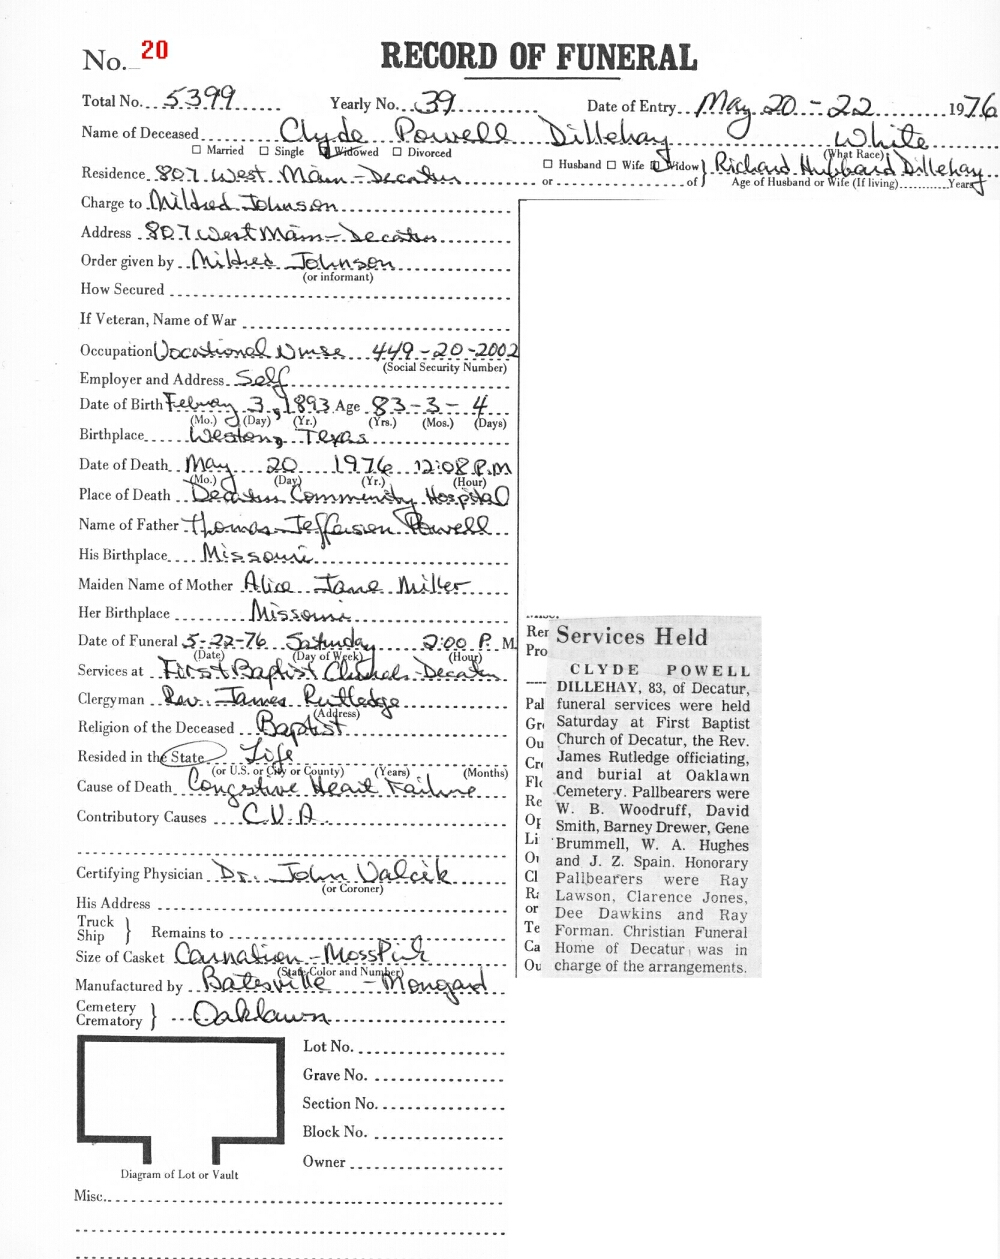 No. 20
RECORD OF FUNERAL
Total No. 5399 Yearly No. 39 Date of Entry May 20-22 1976
Name of Deceased Clyde Powell Dillehay White
☐ Married ☐ Single ☑ Widowed ☐ Divorced (What Race)
Residence 807 West Main - Decatur
☐ Husband ☐ Wife ☑ Widow } Richard Hubbard Dillehay
or of } Age of Husband or Wife (If living) Years
Charge to Mildred Johnson
Address 807 West Main - Decatur
Order given by Mildred Johnson
(or informant)
How Secured
If Veteran, Name of War
Occupation Vocational Nurse 449-20-2002
(Social Security Number)
Employer and Address Self
Date of Birth February 3, 1893 Age 83-3-4
(Mo.) (Day) (Yr.) (Yrs.) (Mos.) (Days)
Birthplace Weston, Texas
Date of Death May 20 1976 12:08 P.M
(Mo.) (Day) (Yr.) (Hour)
Place of Death Decatur Community Hospital
Name of Father Thomas Jefferson Powell
His Birthplace Missouri
Maiden Name of Mother Alice Jane Miller
Her Birthplace Missouri
Date of Funeral 5-22-76 Saturday 2:00 P. M
(Date) (Day of Week) (Hour)
Services at First Baptist Church - Decatur
Clergyman Rev. James Rutledge
(Address)
Religion of the Deceased Baptist
Resided in the State Life
(or U.S. or City or County) (Years) (Months)
Cause of Death Congestive Heart Failure
Contributory Causes C.V.A.
Certifying Physician Dr. John Valcik
(or Coroner)
His Address
Truck
Ship } Remains to
Size of Casket Carnation - Moss Pink
(State Color and Number)
Manufactured by Batesville -
Cemetery
Crematory } Oaklawn
Lot No.
Grave No.
Section No.
Block No.
Owner
Diagram of Lot or Vault
Misc.
Rer
Pro
Pal
Gr
Ou
Cr
Fl
Re
Op
Li
Cl
Ra
or
Te
Ca
Ou
Services Held
CLYDE POWELL
DILLEHAY, 83, of Decatur,
funeral services were held
Saturday at First Baptist
Church of Decatur, the Rev.
James Rutledge officiating,
and burial at Oaklawn
Cemetery. Pallbearers were
W. B. Woodruff, David
Smith, Barney Drewer, Gene
Brummell, W. A. Hughes
and J. Z. Spain. Honorary
Pallbearers were Ray
Lawson, Clarence Jones,
Dee Dawkins and Ray
Forman. Christian Funeral
Home of Decatur was in
charge of the arrangements.